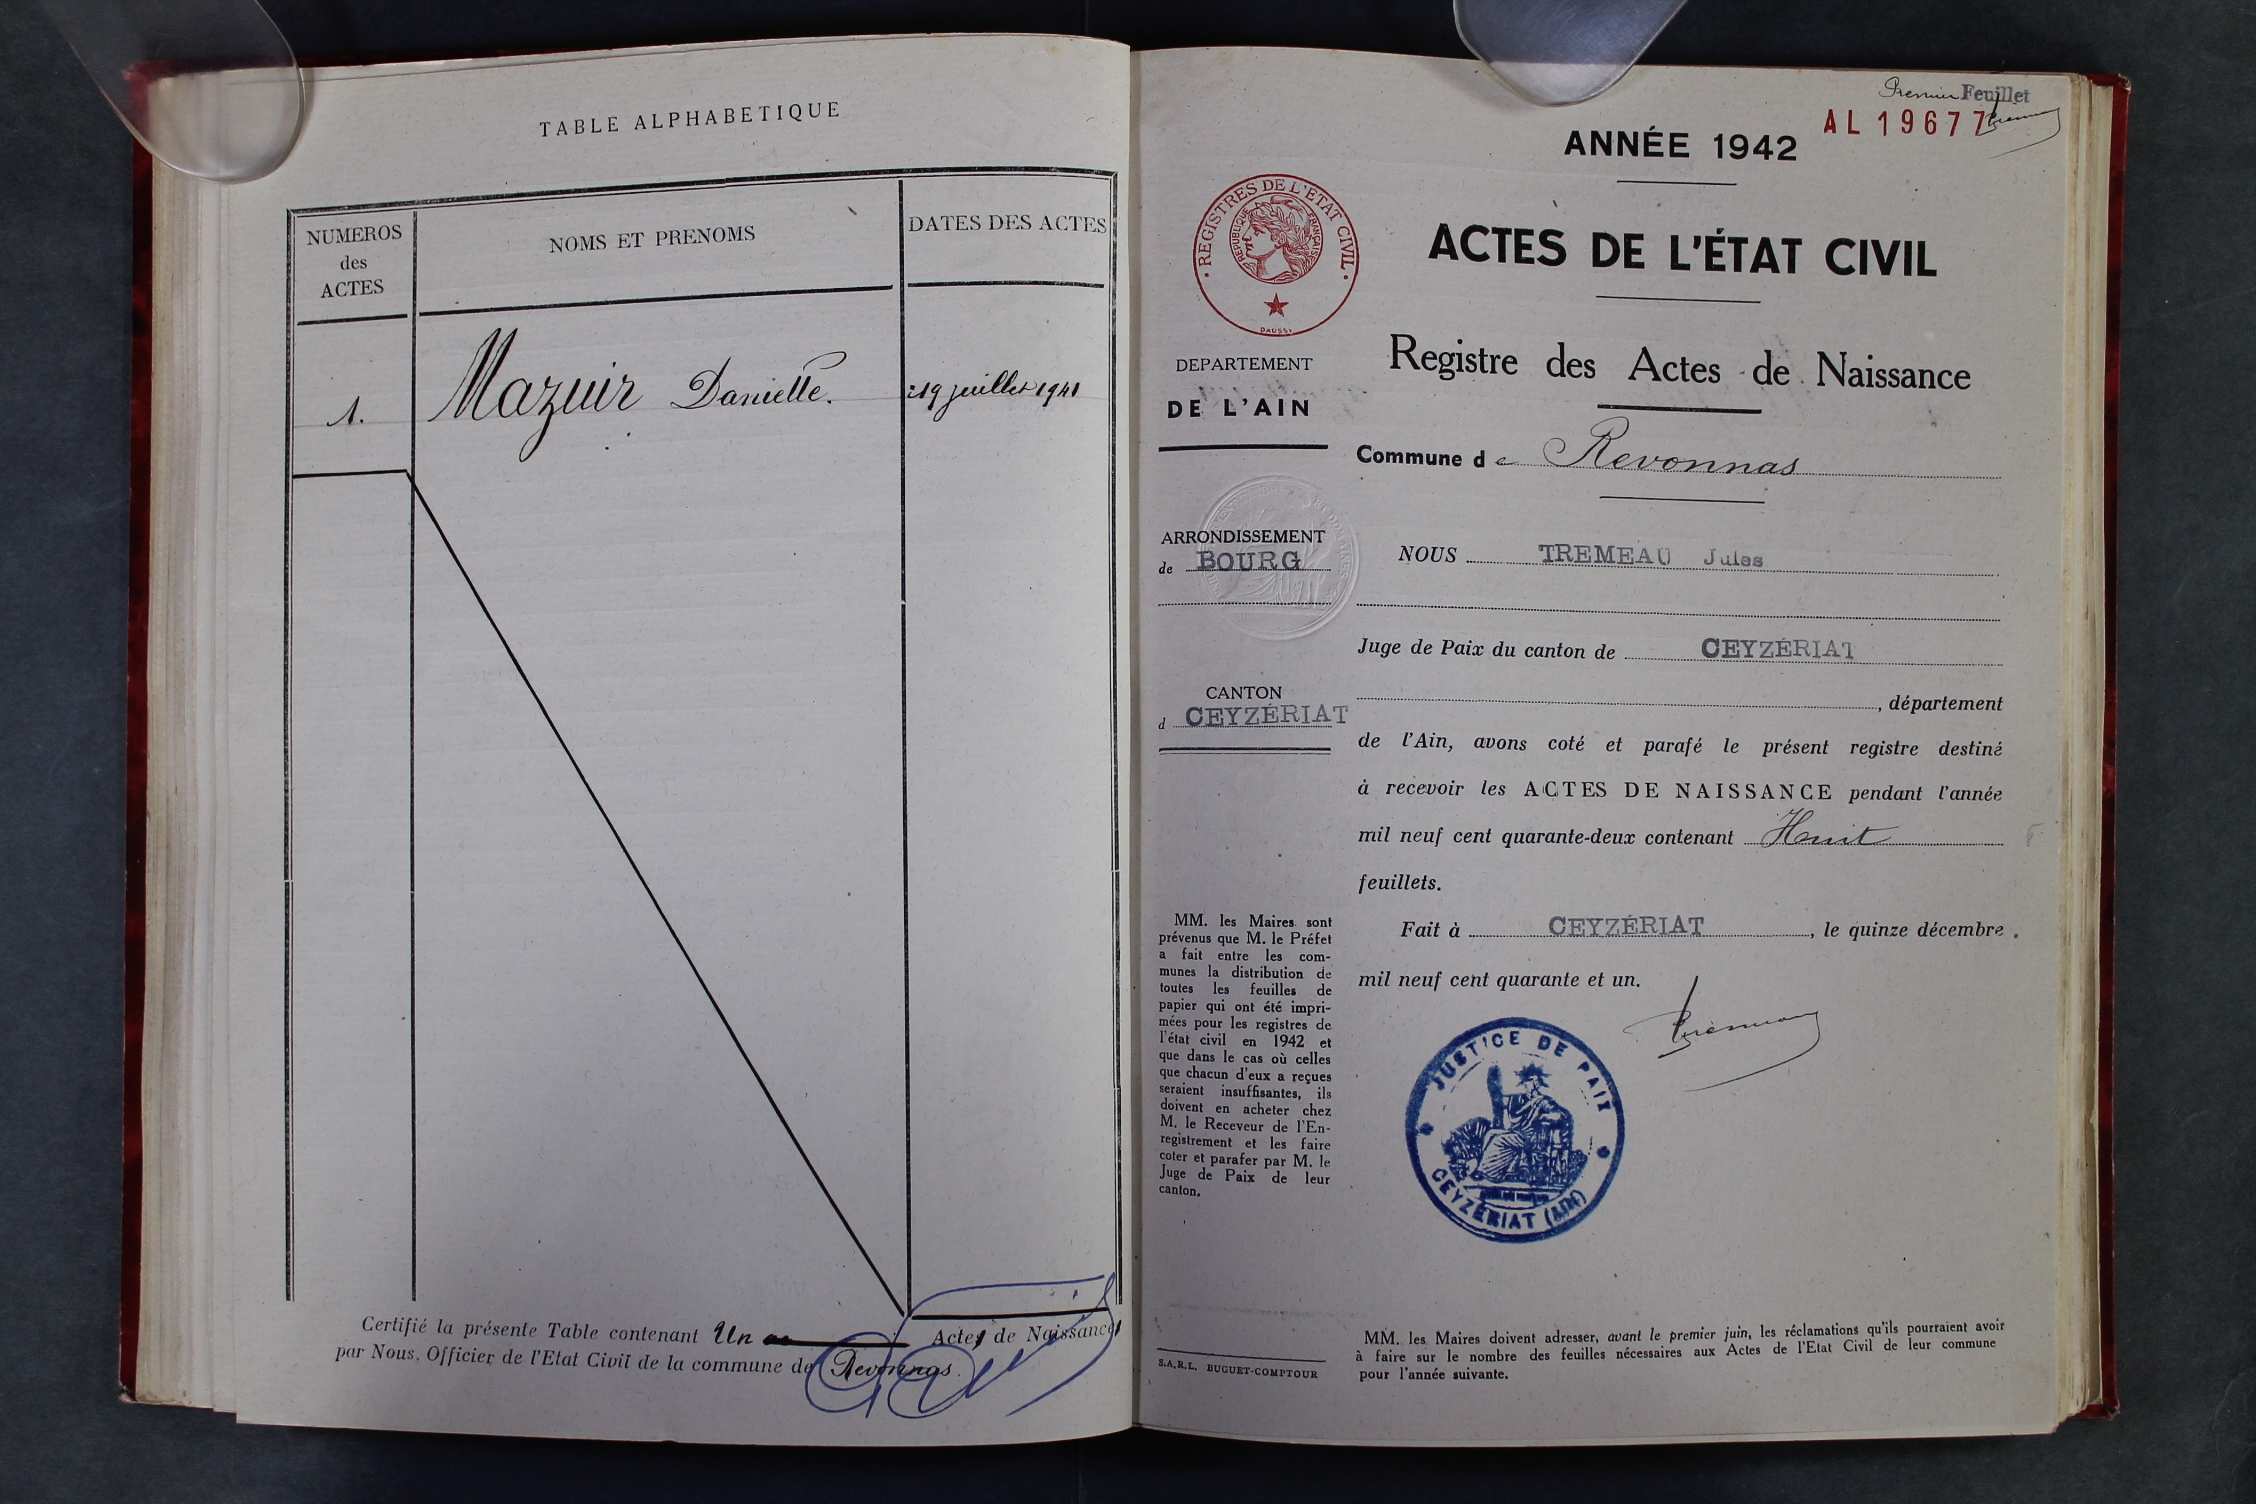 TABLE ALPHABETIQUE
NUMEROS
des
ACTES
NOMS ET PRENOMS
DATES DES ACTES
1.
Mazuir Danielle.
19 juillet 1941
Certifié la présente Table contenant Un Actes de Naissances
par Nous, Officier de l'Etat Civil de la commune de Revonnas.
Premier Feuillet
AL 19677
ANNÉE 1942
ACTES DE L'ÉTAT CIVIL
Registre des Actes de Naissance
Commune de Revonnas
· REGISTRES DE L'ETAT CIVIL ·
REPUBLIQUE FRANÇAISE
DAUSSY
DEPARTEMENT
DE L'AIN
ARRONDISSEMENT
de BOURG
CANTON
d CEYZÉRIAT
NOUS TREMEAU Jules
Juge de Paix du canton de CEYZÉRIAT
, département
de l'Ain, avons coté et parafé le présent registre destiné
à recevoir les ACTES DE NAISSANCE pendant l'année
mil neuf cent quarante-deux contenant Huit
feuillets.
Fait à CEYZÉRIAT, le quinze décembre
mil neuf cent quarante et un.
Tremeau
JUSTICE DE PAIX
CEYZÉRIAT (AIN)
MM. les Maires sont
prévenus que M. le Préfet
a fait entre les com-
munes la distribution de
toutes les feuilles de
papier qui ont été impri-
mées pour les registres de
l'état civil en 1942 et
que dans le cas où celles
que chacun d'eux a reçues
seraient insuffisantes, ils
doivent en acheter chez
M. le Receveur de l'En-
registrement et les faire
coter et parafer par M. le
Juge de Paix de leur
canton.
S.A.R.L. BUGUET-COMPTOUR
MM. les Maires doivent adresser, avant le premier juin, les réclamations qu'ils pourraient avoir
à faire sur le nombre des feuilles nécessaires aux Actes de l'Etat Civil de leur commune
pour l'année suivante.